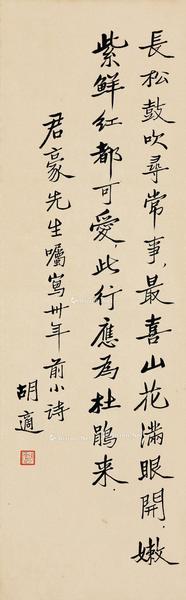 長松鼓吹尋常事，最喜山花滿眼開．嫩
紫鮮紅都可愛，此行應為杜鵑来．
君豪先生囑寫卅年前小詩
胡適